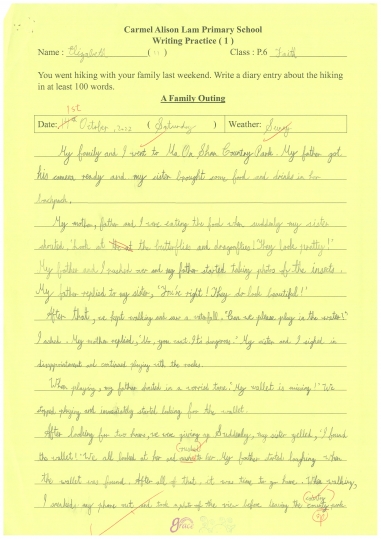 Carmel Alison Lam Primary School
Writing Practice ( 1 )
Name : Elizabeth ( ) Class : P.6 Faith
You went hiking with your family last weekend. Write a diary entry about the hiking
in at least 100 words.
A Family Outing
1st
Date: October, 2022 ( Saturday ) Weather: Sunny
My family and I went to Ma On Shan Country Park. My father got
his camera ready and my sister brought some food and drinks in her
backpack.
My mother, father and I were eating the food when suddenly my sister
shouted, 'Look at the butterflies and dragonflies! They look pretty!'
My father and I rushed over and my father started taking photos of the insects.
My father replied to my sister, 'You're right! They do look beautiful!'
After that, we kept walking and saw a waterfall. 'Can we please play in the water?'
I asked. My mother replied, 'No, you can't. It's dangerous.' My sister and I sighed in
disappointment and continued playing with the rocks.
When playing, my father shouted in a worried tone. 'My wallet is missing!' We
stopped playing and immediately started looking for the wallet.
After looking for two hours, we were giving up. Suddenly, my sister yelled, 'I found
rushed
the wallet!' We all looked at her and to her. My father started laughing when
the wallet was found. After all of that, it was time to go home. When walking,
country
I my phone out and took a photo of the view before leaving the country park.